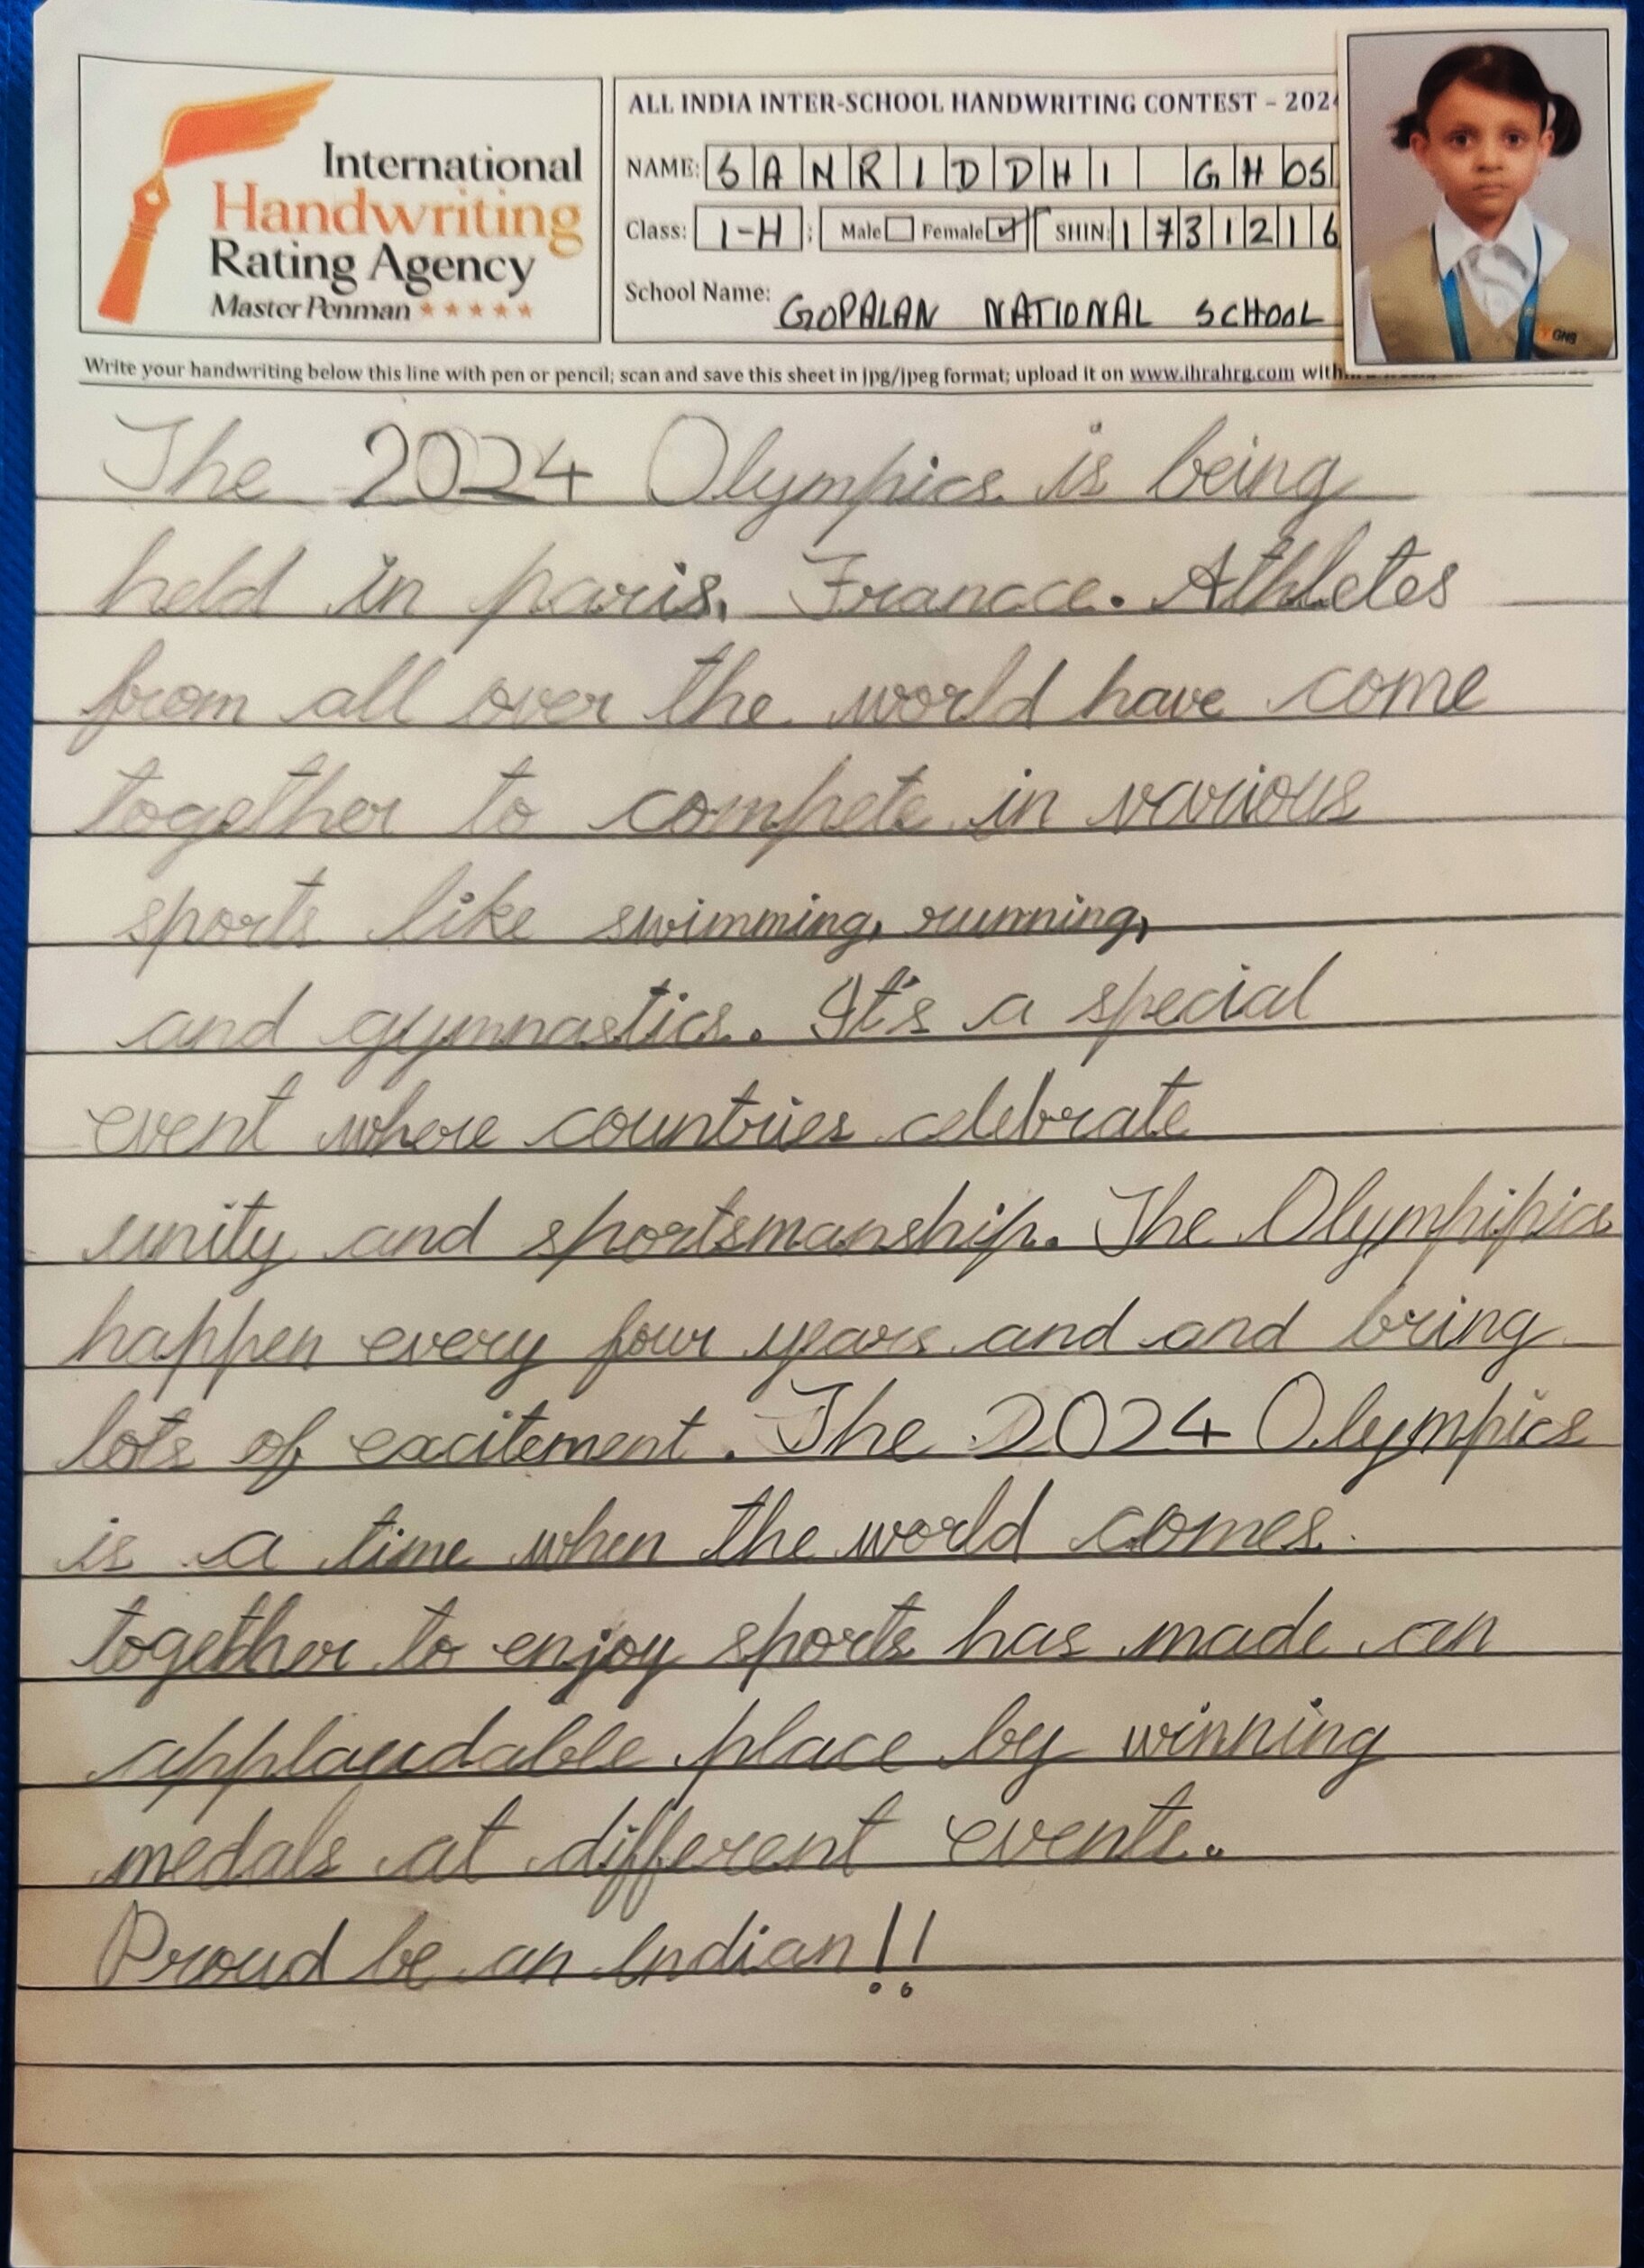 International
Handwriting
Rating Agency
Master Penman ★★★★★
ALL INDIA INTER-SCHOOL HANDWRITING CONTEST – 2024
NAME: SANRIDDHI GHOS
Class: I-H ; Male Female ✓ SHIN: 1731216
School Name: GOPALAN NATIONAL SCHOOL
GNS
Write your handwriting below this line with pen or pencil; scan and save this sheet in jpg/jpeg format; upload it on www.ihrahrg.com
The 2024 Olympics is being
held in paris, Francce. Athletes
from all over the world have come
together to compete in various
sports like swimming, running,
and gymnastics. It's a special
event where countries celebrate
unity and sportsmanship. The Olympipics
happen every four years and and bring
lots of excitement. The 2024 Olympics
is a time when the world comes
together to enjoy sports has made an
applaudable place by winning
medals at different events.
Proud be an Indian!!